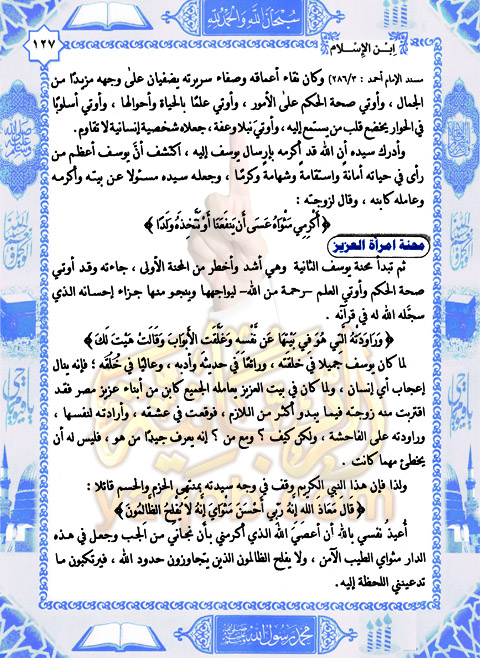 سبحان الله والحمد لله
١٢٧
ابن الإسلام
مسند الإمام أحمد : ٢٨٦/٣) وكان نقاء أعماقه وصفاء سريرته يضفيان على وجهه مزيدًا من
الجمال ، وأوتي صحة الحكم على الأمور ، وأوتي علمًا بالحياة وأحوالها ، وأوتي أسلوبًا
في الحوار يخضع قلب من يستمع إليه ، وأوتي نبلا وعفة ، جعلاه شخصية إنسانية لا تقاوم.
وأدرك سيده أن الله قد أكرمه بإرسال يوسف إليه ، اكتشف أنَّ يوسف أعظم من
رأى في حياته أمانةً واستقامةً وشهامةً وكرمًا ، وجعله سيده مسئولا عن بيته وأكرمه
وعامله كابنه ، وقال لزوجته :
﴿ أَكْرِمِي مَثْوَاهُ عَسَى أَن يَنفَعَنَا أَوْ نَتَّخِذَهُ وَلَدًا ﴾
محنة امرأة العزيز
ثم تبدأ محنة يوسف الثانية وهي أشد وأخطر من المحنة الأولى ، جاءته وقد أوتي
صحة الحكم وأوتي العلم –رحمة من الله– ليواجهها وينجو منها جزاء إحسانه الذي
سجَّله الله له في قرآنه .
﴿ وَرَاوَدَتْهُ الَّتِي هُوَ فِي بَيْتِهَا عَن نَّفْسِهِ وَغَلَّقَتِ الأَبْوَابَ وَقَالَتْ هَيْتَ لَكَ ﴾
لما كان يوسف جميلا في خلقته ، ورائعًا في حديثه وأدبه ، وعاليًا في خُلُقَه ؛ فإنه ينال
إعجاب أي إنسان ، ولما كان في بيت العزيز يعامله الجميع كابن من أبناء عزيز مصر فقد
اقتربت منه زوجته فيما يبدو أكثر من اللازم ، فوقعت في عشقه ، وأرادته لنفسها ،
وراودته على الفاحشة ، ولكن كيف ؟ ومع من ؟ إنه يعرف جيدًا من هو ، فليس له أن
يخطئ مهما كانت .
ولذا فإن هذا النبي الكريم وقف في وجه سيدته بمنتهى الحزم والحسم قائلا :
﴿ قَالَ مَعَاذَ اللَّهِ إِنَّهُ رَبِّي أَحْسَنَ مَثْوَايَ إِنَّهُ لا يُفْلِحُ الظَّالِمُونَ ﴾
أُعيذُ نفسي بالله أن أعصيَ اللهَ الذي أكرمني بأن نجاني من الجب وجعل في هذه
الدار مثواي الطيب الآمن ، ولا يفلح الظالمون الذين يتجاوزون حدود الله ، فيرتكبون ما
تدعينني اللحظة إليه.
محمد رسول الله